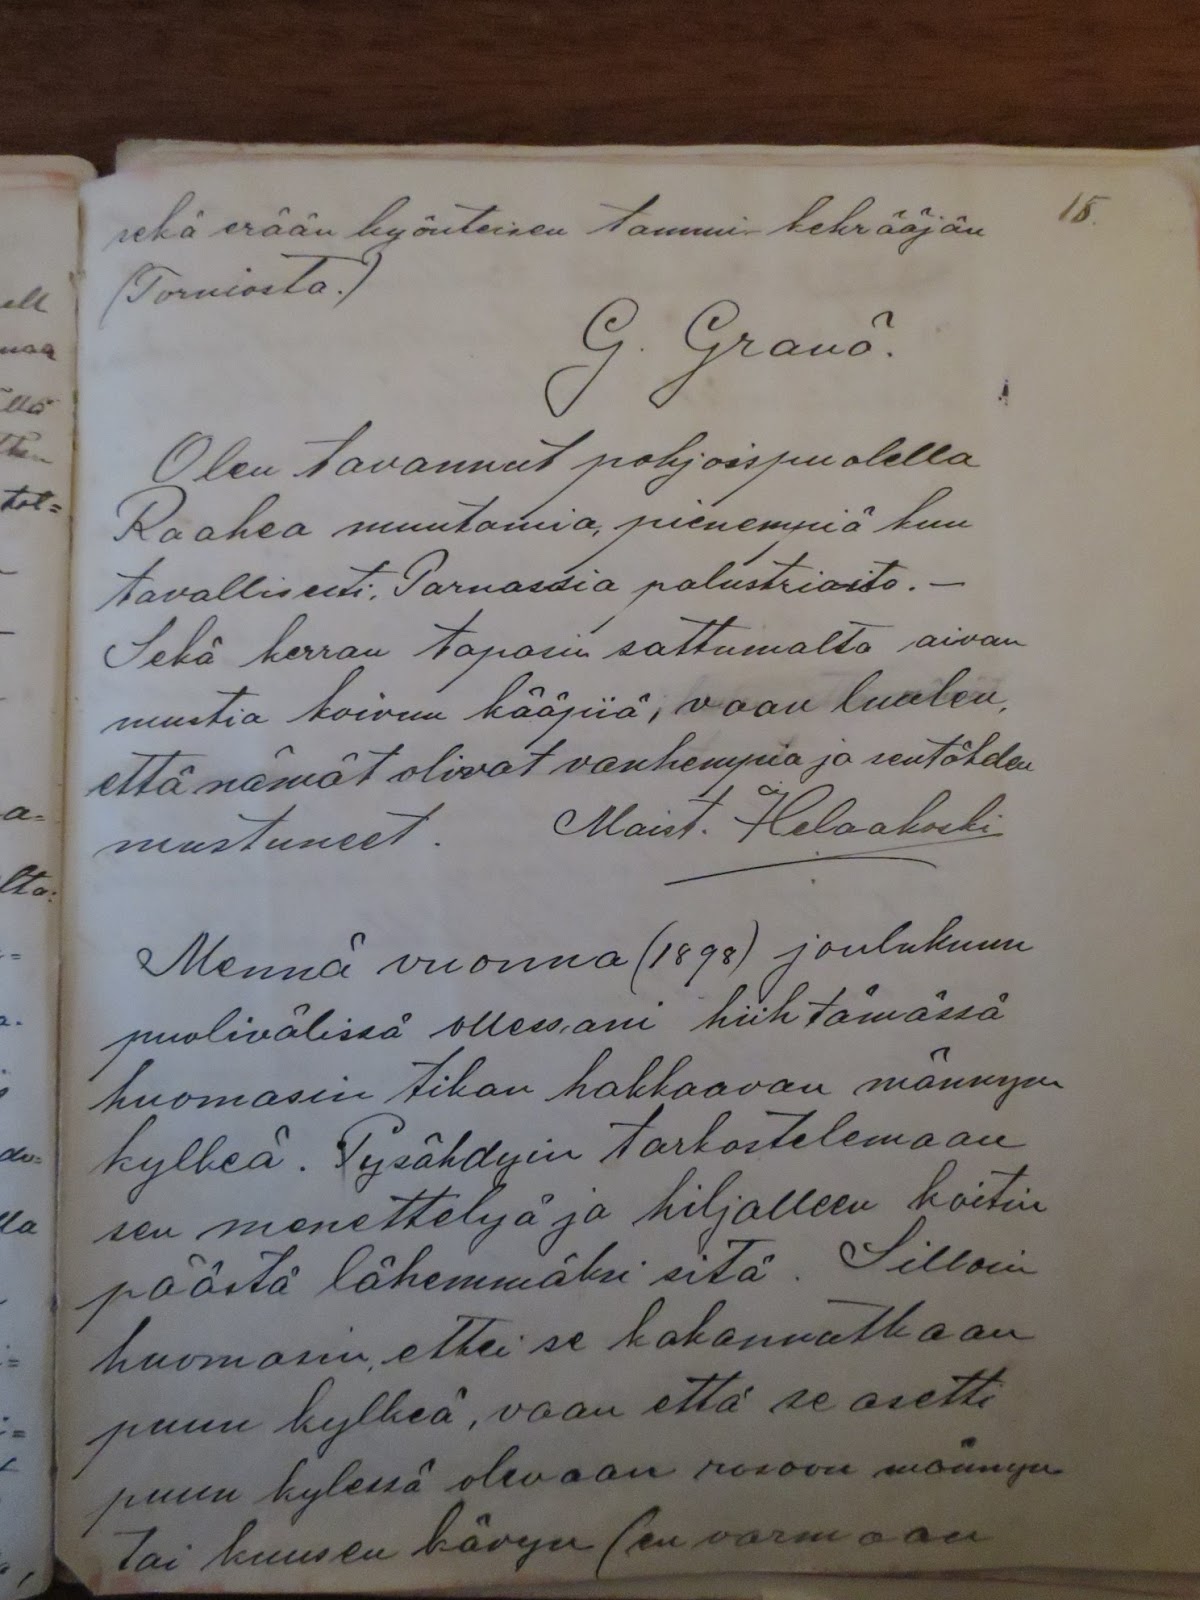 15.
sekä erään hyönteisen tammi- kehrääjän
(Torniosta.)
G. Granö.
Olen tavannut pohjoispuolella
Raahea muutamia, pienempiä kuu
tavallisesti, Parnassia palustriasito. —
Sekä kerran tapasin sattumalta aivan
mustia koivun kääpiä, vaan luulen,
että nämät olivat vanhempia ja sentähden
mustuneet. Maist. Helaakoski
Mennä vuonna (1898) joulukuun
puolivälissä ollessani hiihtämässä
huomasin tikan hakkaavan männyn
kylkeä. Pysähdyin tarkastelemaan
sen menettelyä ja hiljalleen koitin
päästä lähemmäksi sitä. Silloin
huomasin, ettei se hakannutkaan
puun kylkeä, vaan että se asetti
puun kylessä olevaan rosoon männyn
tai kuusen kävyn (en varmaan
ell
maa
ällä
tol=
a=
lta:
lla